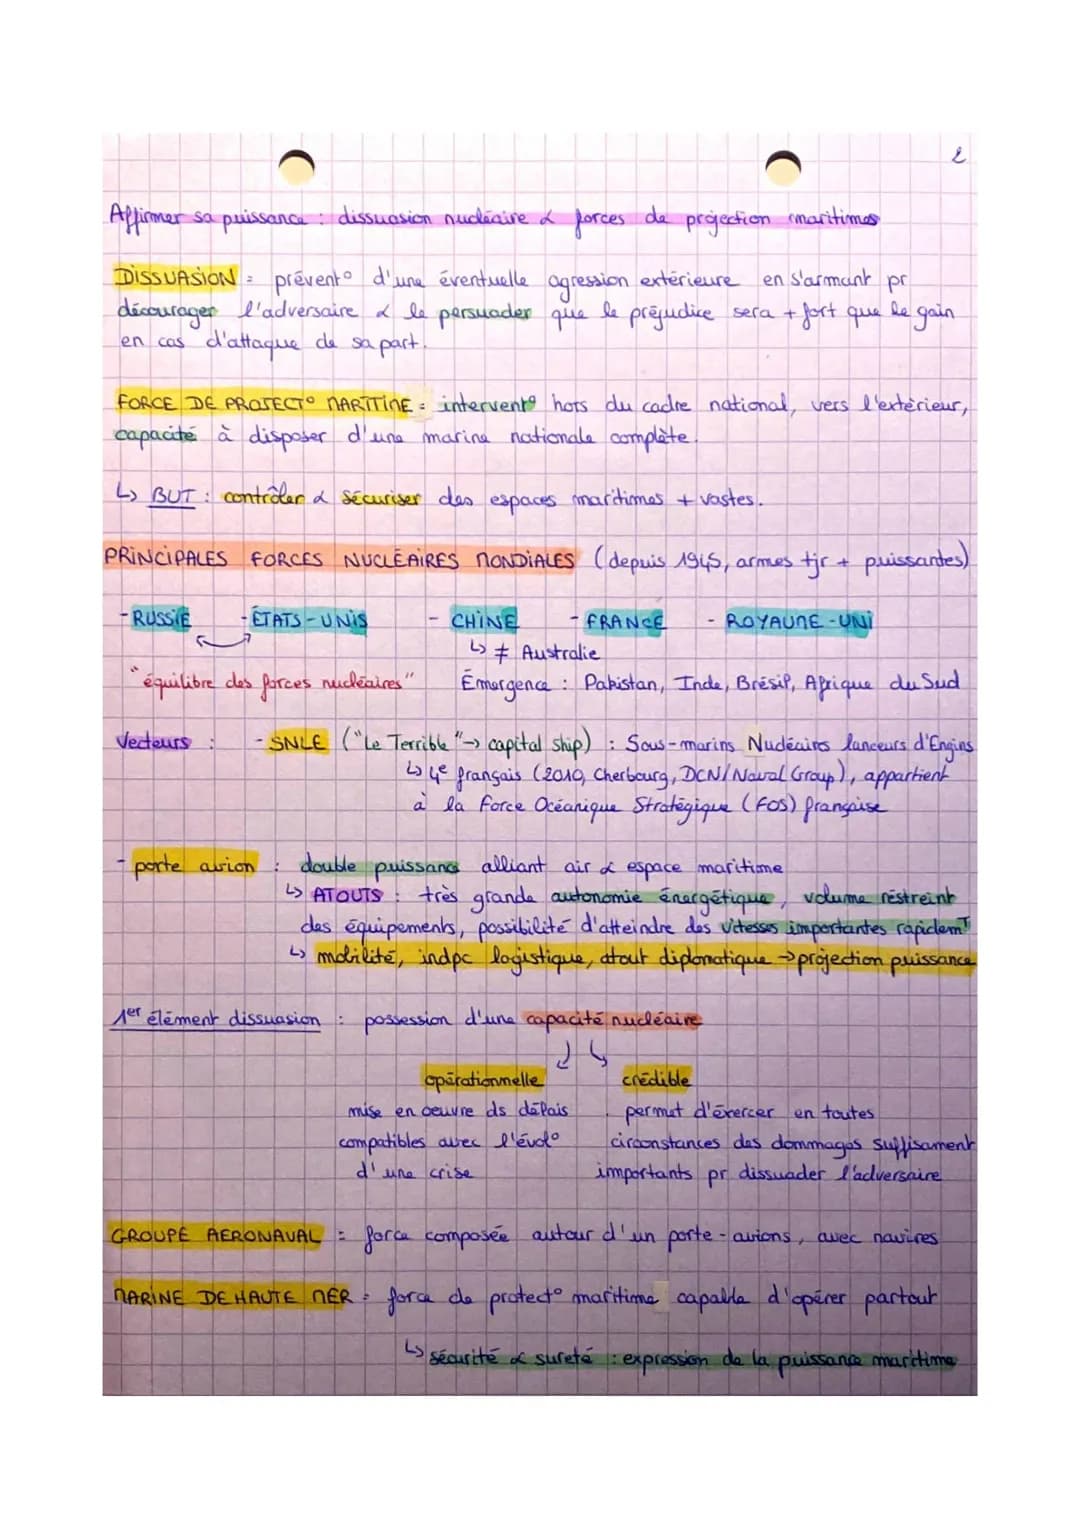 2
Affirmer sa puissance : dissuasion nucléaire & forces de projection maritimes
DISSUASION = prévent° d'une éventuelle agression extérieure en s'armant pr
décourager l'adversaire & le persuader que le préjudice sera + fort que le gain
en cas d'attaque de sa part.
FORCE DE PROJECT° MARITIME = intervent° hors du cadre national, vers l'extérieur,
capacité à disposer d'une marine nationale complète.
↳ BUT : contrôler & sécuriser des espaces maritimes + vastes.
PRINCIPALES FORCES NUCLÉAIRES MONDIALES (depuis 1945, armes tjr + puissantes)
- RUSSIE - ÉTATS-UNIS - CHINE - FRANCE - ROYAUME-UNI
↳ ≠ Australie
"équilibre des forces nucléaires" Émergence : Pakistan, Inde, Brésil, Afrique du Sud
Vecteurs : - SNLE ("Le Terrible" → capital ship) : Sous-marins Nucléaires lanceurs d'Engins
↳ 4e français (2010, Cherbourg, DCN/Naval Group), appartient
à la Force Océanique Stratégique (FOS) française
- porte avion : double puissance alliant air & espace maritime
↳ ATOUTS : très grande autonomie énergétique, volume réstreint
des équipements, possibilité d'atteindre des vitesses importantes rapidemT
↳ mobilité, indpc logistique, atout diplomatique → projection puissance
1er élément dissuasion : possession d'une capacité nucléaire
opérationnelle crédible
mise en oeuvre ds délais permet d'exercer en toutes
compatibles avec l'évol° circonstances des dommages suffisament
d'une crise importants pr dissuader l'adversaire
GROUPE AERONAVAL = force composée autour d'un porte-avions, avec navires
MARINE DE HAUTE MER = force de protect° maritime capable d'opérer partout
↳ sécurité & sureté : expression de la puissance maritime